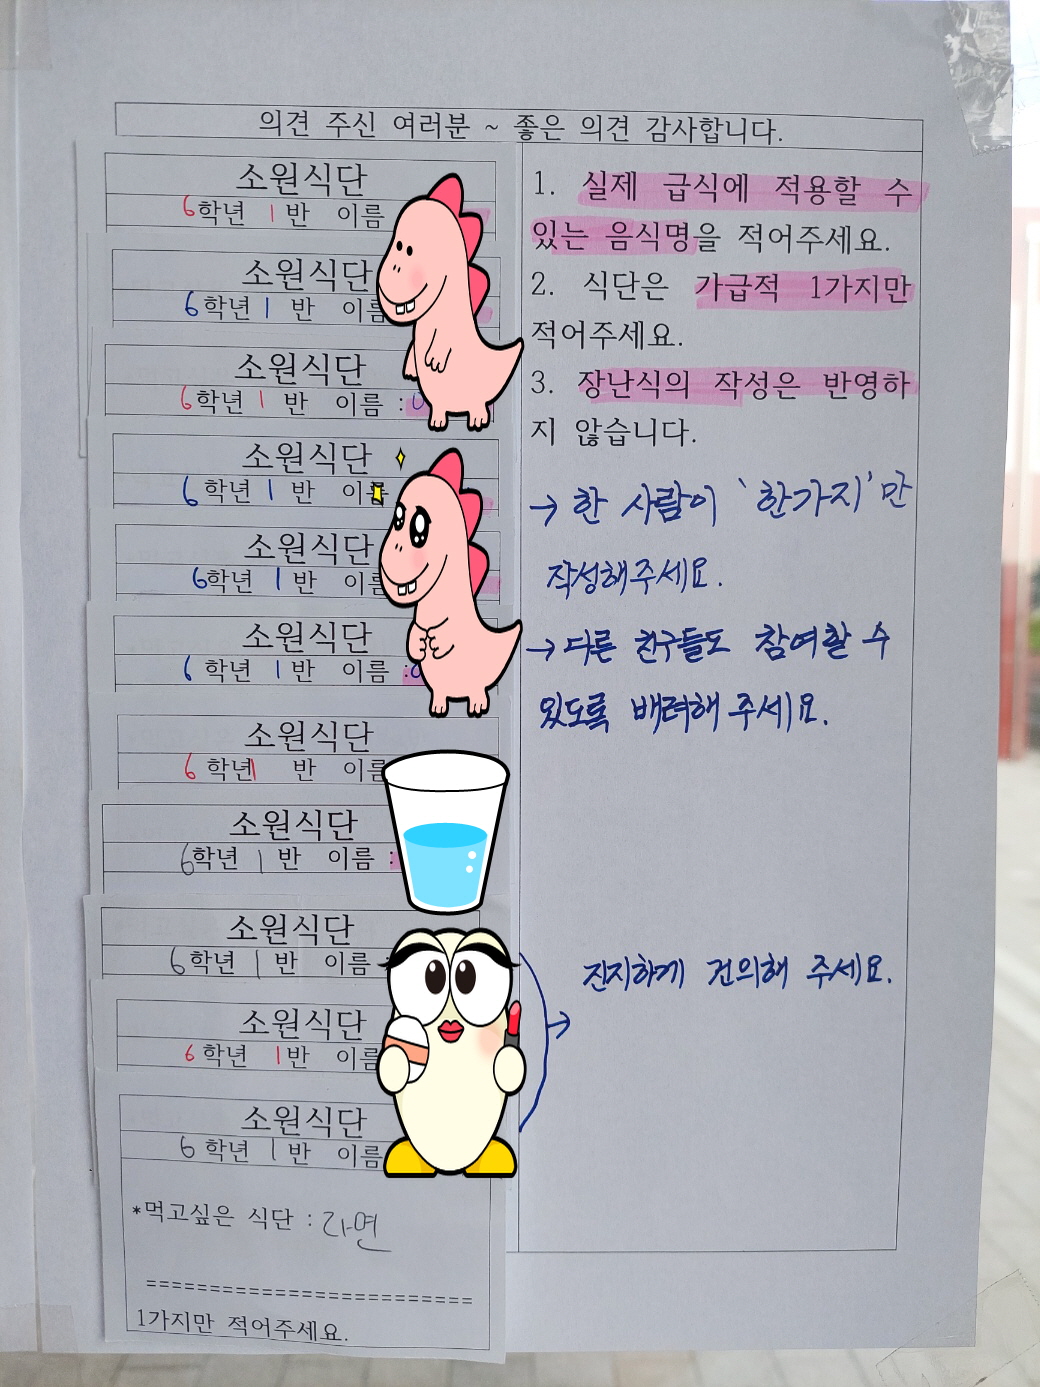 의견 주신 여러분 ~ 좋은 의견 감사합니다.
소원식단
6학년 1반 이름
소원식단
6학년 1반 이름
소원식단
6학년 1반 이름 :
소원식단
6학년 1반 이
소원식단
6학년 1반 이름
소원식단
6학년 1반 이름 :
소원식단
6학년 1반 이름
소원식단
6학년 1반 이름 :
소원식단
6학년 1반 이름
소원식단
6학년 1반 이름
소원식단
6학년 1반 이름
*먹고싶은 식단 : 라면
========================
1가지만 적어주세요.
1. 실제 급식에 적용할 수
있는 음식명을 적어주세요.
2. 식단은 가급적 1가지만
적어주세요.
3. 장난식의 작성은 반영하
지 않습니다.
→ 한 사람이 '한가지'만
작성해주세요.
→ 다른 친구들도 참여할 수
있도록 배려해 주세요.
→ 진지하게 건의해 주세요.